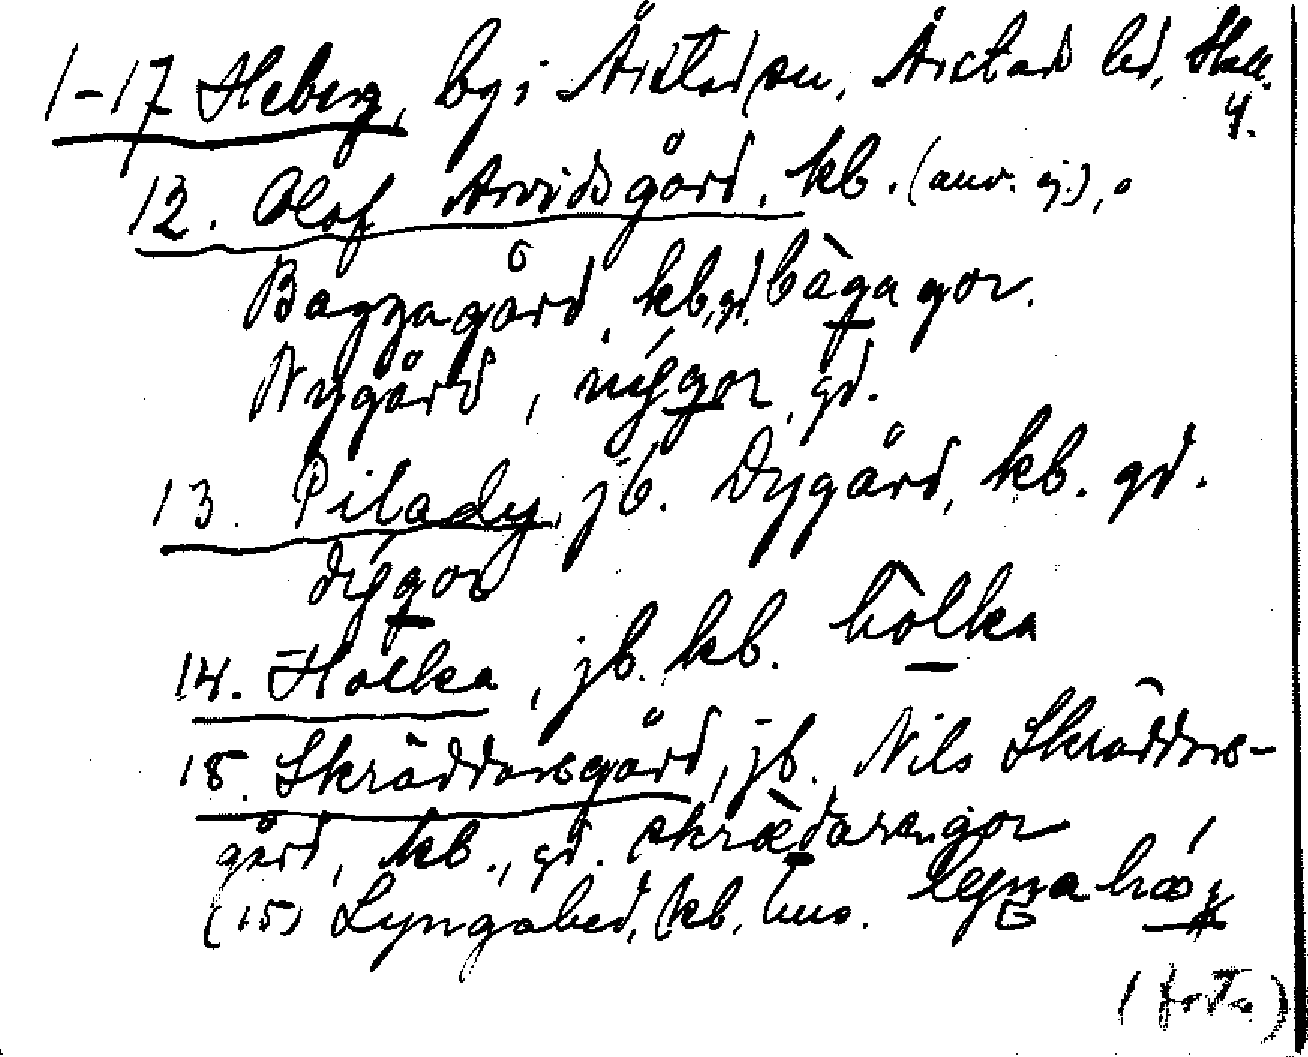 1-17 Heberg, by i Årstad sn, Årstads hd, Hall.
4.
12. Olof Arvidsgård, kb. (anv. ej),
Baggagård, kb, gd. bàgagor.
Nygård, nýgor, gd.
13. Pilady, jb. Dygård, kb. gd.
dýgor
14. Holka, jb. kb. hòlka
15. Skräddaregård, jb. Nils Skräddare-
gård, kb., gd. skrædaragor
(15) Lyngahed, kb, hus.
(forts)